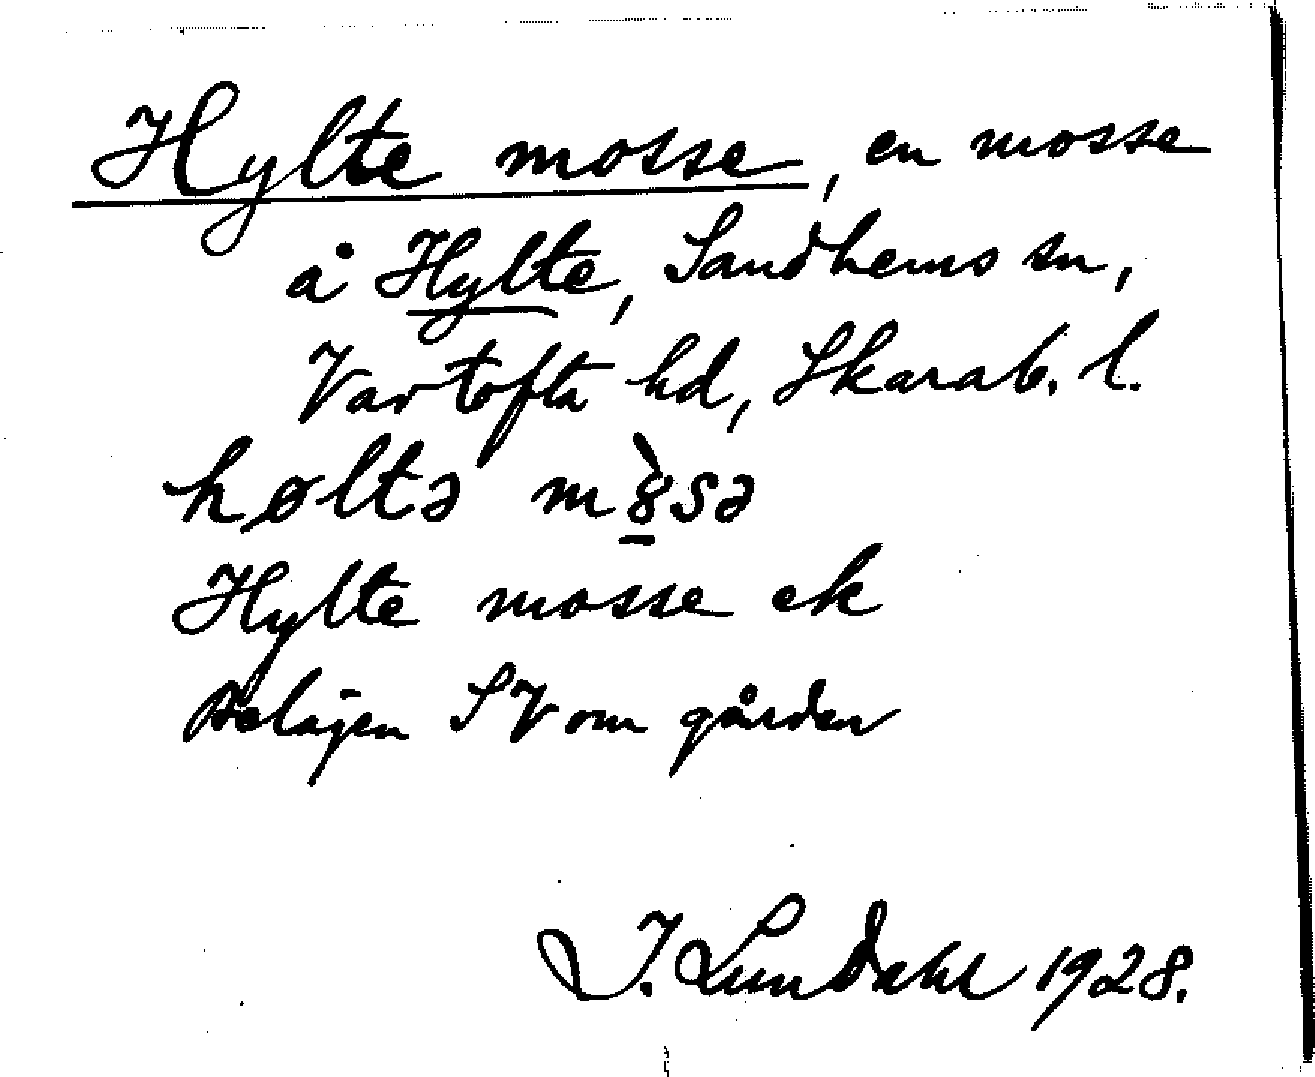 Hylte mosse, en mosse
å Hylte, Sandhems sn,
Vartofta hd, Skarab. l.
høltə m8̀sə
Hylte mosse ek
Belägen SV om gården
I. Lundahl 1928.